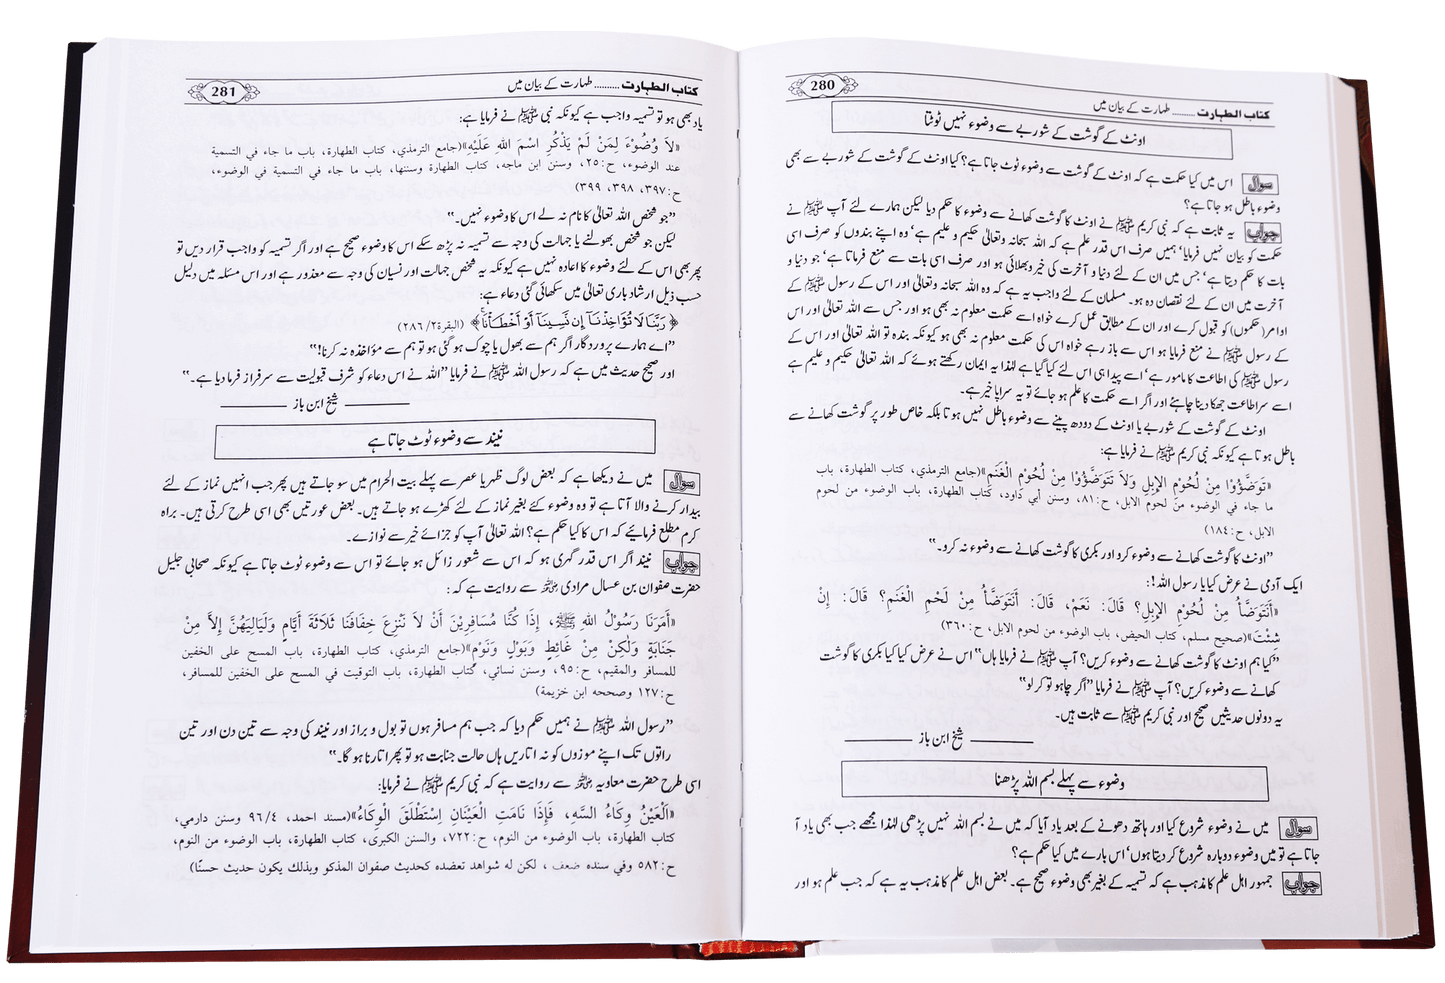 کتاب الطہارت .......... طہارت کے بیان میں 280
اونٹ کے گوشت کے شوربے سے وضوء نہیں ٹوٹتا
سوال اس میں کیا حکمت ہے کہ اونٹ کے گوشت سے وضوء ٹوٹ جاتا ہے؟ کیا اونٹ کے گوشت کے شوربے سے بھی
وضوء باطل ہو جاتا ہے؟
جواب یہ ثابت ہے کہ نبی کریم ﷺ نے اونٹ کا گوشت کھانے سے وضوء کا حکم دیا لیکن ہمارے لئے آپ ﷺ نے
حکمت کو بیان نہیں فرمایا‘ ہمیں صرف اس قدر علم ہے کہ اللہ سبحانہ وتعالیٰ حکیم و علیم ہے‘ وہ اپنے بندوں کو صرف اسی
بات کا حکم دیتا ہے‘ جس میں ان کے لئے دنیا و آخرت کی خیر و بھلائی ہو اور صرف اسی بات سے منع فرماتا ہے‘ جو دنیا و
آخرت میں ان کے لئے نقصان دہ ہو۔ مسلمان کے لئے واجب یہ ہے کہ وہ اللہ سبحانہ وتعالیٰ اور اس کے رسول ﷺ کے
اوامر (حکموں) کو قبول کرے اور ان کے مطابق عمل کرے خواہ اسے حکمت معلوم نہ بھی ہو اور جس سے اللہ تعالیٰ اور اس
کے رسول ﷺ نے منع فرمایا ہو اس سے باز رہے خواہ اس کی حکمت معلوم نہ بھی ہو کیونکہ بندہ تو اللہ تعالیٰ اور اس کے
رسول ﷺ کی اطاعت کا مامور ہے‘ اسے پیدا ہی اس لئے کیا گیا ہے لہٰذا یہ ایمان رکھتے ہوئے کہ اللہ تعالیٰ حکیم و علیم ہے
اسے سر اطاعت جھکا دینا چاہئے اور اگر اسے حکمت کا علم ہو جائے تو یہ سراپا خیر ہے۔
اونٹ کے گوشت کے شوربے یا اونٹ کے دودھ پینے سے وضوء باطل نہیں ہوتا بلکہ خاص طور پر گوشت کھانے سے
باطل ہوتا ہے کیونکہ نبی کریم ﷺ نے فرمایا ہے:
«تَوَضَّؤُوْا مِنْ لُحُوْمِ الإِبِلِ وَلاَ تَتَوَضَّؤُوْا مِنْ لُحُوْمِ الْغَنَمِ»(جامع الترمذي، كتاب الطهارة، باب
ما جاء في الوضوء من لحوم الابل، ح:٨١، وسنن أبي داود، كتاب الطهارة، باب الوضوء من لحوم
الابل، ح:١٨٤)
”اونٹ کا گوشت کھانے سے وضوء کرو اور بکری کا گوشت کھانے سے وضوء نہ کرو۔“
ایک آدمی نے عرض کیا یا رسول اللہ!:
«أَنَتَوَضَّأُ مِنْ لُحُوْمِ الإِبِلِ؟ قَالَ: نَعَمْ، قَالَ: أَنَتَوَضَّأُ مِنْ لَحْمِ الْغَنَمِ؟ قَالَ: إِنْ
شِئْتَ»(صحيح مسلم، كتاب الحيض، باب الوضوء من لحوم الابل، ح:٣٦٠)
”کیا ہم اونٹ کا گوشت کھانے سے وضوء کریں؟ آپ ﷺ نے فرمایا ہاں“ اس نے عرض کیا کیا بکری کا گوشت
کھانے سے وضوء کریں؟ آپ ﷺ نے فرمایا ”اگر چاہو تو کر لو“
یہ دونوں حدیثیں صحیح اور نبی کریم ﷺ سے ثابت ہیں۔
شیخ ابن باز
وضوء سے پہلے بسم اللہ پڑھنا
سوال میں نے وضوء شروع کیا اور ہاتھ دھونے کے بعد یاد آیا کہ میں نے بسم اللہ نہیں پڑھی لہٰذا مجھے جب بھی یاد آ
جاتا ہے تو میں وضوء دوبارہ شروع کر دیتا ہوں‘ اس بارے میں کیا حکم ہے؟
جواب جمہور اہل علم کا مذہب ہے کہ تسمیہ کے بغیر بھی وضوء صحیح ہے۔ بعض اہل علم کا مذہب یہ ہے کہ جب علم ہو اور
کتاب الطہارت .......... طہارت کے بیان میں 281
یاد بھی ہو تو تسمیہ واجب ہے کیونکہ نبی ﷺ نے فرمایا ہے:
«لاَ وُضُوْءَ لِمَنْ لَمْ يَذْكُرِ اسْمَ اللهِ عَلَيْهِ»(جامع الترمذي، كتاب الطهارة، باب ما جاء في التسمية
عند الوضوء، ح:٢٥، وسنن ابن ماجه، كتاب الطهارة وسننها، باب ما جاء في التسمية في الوضوء،
ح:٣٩٧، ٣٩٨، ٣٩٩)
”جو شخص اللہ تعالیٰ کا نام نہ لے اس کا وضوء نہیں۔“
لیکن جو شخص بھولنے یا جہالت کی وجہ سے تسمیہ نہ پڑھ سکے اس کا وضوء صحیح ہے اور اگر تسمیہ کو واجب قرار دیں تو
پھر بھی اس کے لئے وضوء کا اعادہ نہیں ہے کیونکہ یہ شخص جہالت اور نسیان کی وجہ سے معذور ہے اور اس مسئلہ میں دلیل
حسب ذیل ارشاد باری تعالیٰ میں سکھائی گئی دعاء ہے:
﴿ رَبَّنَا لَا تُؤَاخِذْنَآ إِن نَّسِينَآ أَوْ أَخْطَأْنَا﴾ (البقرة٢/٢٨٦)
”اے ہمارے پروردگار اگر ہم سے بھول یا چوک ہو گئی ہو تو ہم سے مؤاخذہ نہ کرنا!“
اور صحیح حدیث میں ہے کہ رسول اللہ ﷺ نے فرمایا ”اللہ نے اس دعاء کو شرف قبولیت سے سرفراز فرما دیا ہے۔“
شیخ ابن باز
نیند سے وضوء ٹوٹ جاتا ہے
سوال میں نے دیکھا ہے کہ بعض لوگ ظہر یا عصر سے پہلے بیت الحرام میں سو جاتے ہیں پھر جب انہیں نماز کے لئے
بیدار کرنے والا آتا ہے تو وہ وضوء کئے بغیر نماز کے لئے کھڑے ہو جاتے ہیں۔ بعض عورتیں بھی اسی طرح کرتی ہیں۔ براہ
کرم مطلع فرمائیے کہ اس کا کیا حکم ہے؟ اللہ تعالیٰ آپ کو جزائے خیر سے نوازے۔
جواب نیند اگر اس قدر گہری ہو کہ اس سے شعور زائل ہو جائے تو اس سے وضوء ٹوٹ جاتا ہے کیونکہ صحابی جلیل
حضرت صفوان بن عسال مرادی رضی اللہ عنہ سے روایت ہے کہ:
«أَمَرَنَا رَسُوْلُ اللهِ ﷺ، إِذَا كُنَّا مُسَافِرِيْنَ أَنْ لاَ نَنْزِعَ خِفَافَنَا ثَلاَثَةَ أَيَّامٍ وَلَيَالِيَهُنَّ إِلاَّ مِنْ
جَنَابَةٍ وَلٰكِنْ مِنْ غَائِطٍ وَبَوْلٍ وَنَوْمٍ»(جامع الترمذي، كتاب الطهارة، باب المسح على الخفين
للمسافر والمقيم، ح:٩٥، وسنن نسائي، كتاب الطهارة، باب التوقيت في المسح على الخفين للمسافر،
ح:١٢٧ وصححه ابن خزيمة)
”رسول اللہ ﷺ نے ہمیں حکم دیا کہ جب ہم مسافر ہوں تو بول و براز اور نیند کی وجہ سے تین دن اور تین
راتوں تک اپنے موزوں کو نہ اتاریں ہاں حالت جنابت ہو تو پھر اتارنا ہو گا۔“
اسی طرح حضرت معاویہ رضی اللہ عنہ سے روایت ہے کہ نبی کریم ﷺ نے فرمایا:
«اَلْعَيْنُ وِكَاءُ السَّهِ، فَإِذَا نَامَتِ الْعَيْنَانِ اِسْتَطْلَقَ الْوِكَاءُ»(مسند احمد، ٩٦/٤ وسنن دارمي،
كتاب الطهارة، باب الوضوء من النوم، ح:٧٢٢، والسنن الكبرى، كتاب الطهارة، باب الوضوء من النوم،
ح:٥٨٢ وفي سنده ضعف ، لكن له شواهد تعضده كحديث صفوان المذكو وبذلك يكون حديث حسنًا)